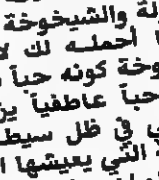 لة والشيخوخة
أحمله لك لا
وخة كونه حباً
حباً عاطفياً ين
في ظل سيط
التي يعيشها ا